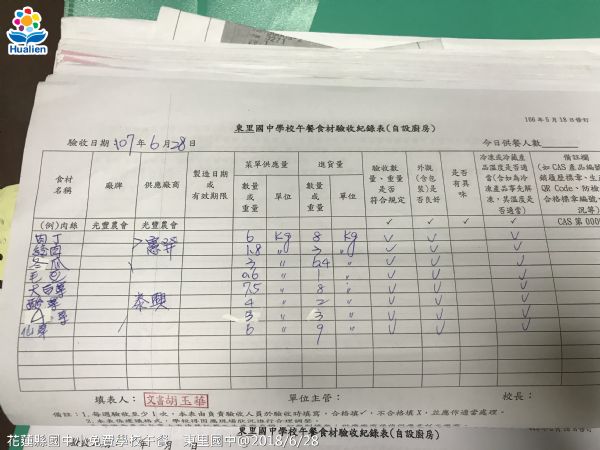 Hualien
106年5月18日修訂
東里國中學校午餐食材驗收紀錄表(自設廚房)
驗收日期:107年6月28日 今日供餐人數
食材名稱 廠牌 供應廠商 製造日期或有效期限 菜單供應量 進貨量 驗收數量、重量是否符合規定 外觀(含包裝)是否良好 是否有異味 冷凍或冷藏產品溫度是否適合(含如為冷凍產品事先解凍,其溫度是否適當) 備註欄
數量或重量 單位 數量或重量 單位
(如 CAS 產品編號
QR Code、防檢
合格標章編號
況等)
(例)肉絲 光豐農會 光豐農會 ✓ ✓ ✓ ✓ CAS 第000
肉丁 6 kg 8 kg ✓ ✓ ✓ ✓
絞肉 1.8 〃 3 〃 ✓ ✓ ✓ ✓
冬瓜 3 〃 6.4 〃 ✓ ✓ ✓ ✓
毛豆 0.6 〃 1 〃 ✓ ✓ ✓ ✓
大白菜 7.5 〃 8 〃 ✓ ✓ ✓ ✓
酸菜 泰興 4 〃 2 〃 ✓ ✓ ✓ ✓
3 〃 3 〃 ✓ ✓ ✓ ✓
6 〃 9 〃 ✓ ✓ ✓ ✓
填表人: 文書胡玉華 單位主管: 校長:
備註:1.每週驗收至少1次,本表由負責驗收人員於驗收時填寫,合格填✓,不合格填X,並應作適當處理。
2.本表係建議格式,學校得因應現場狀況進行合理調整。
東里國中學校午餐食材驗收紀錄表(自設廚房)
花蓮縣國中小免費學校午餐 東里國中@2018/6/28